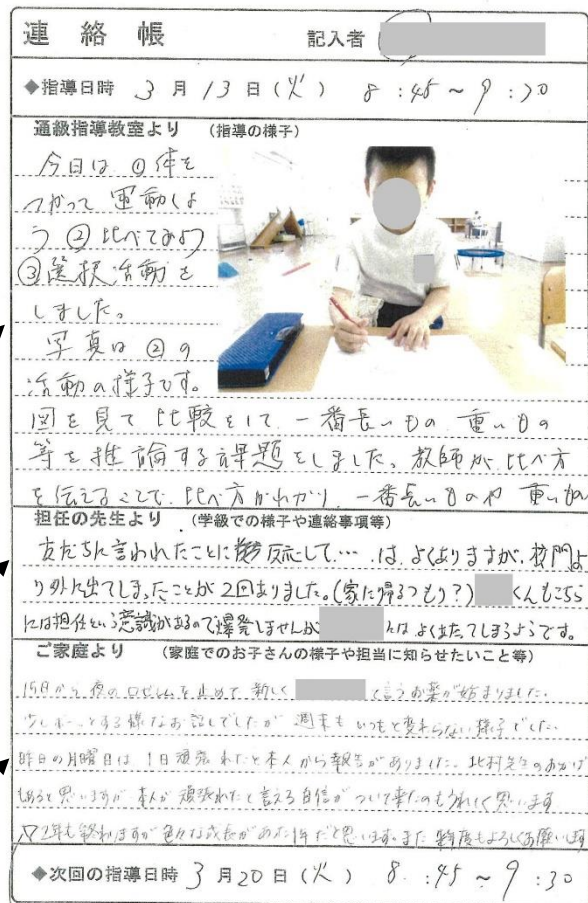 連絡帳 記入者
◆指導日時 3月13日(火) 8:45~9:30
通級指導教室より (指導の様子)
今日は ①体を
つかって 運動しよ
う ②比べてみよう
③選択活動を
しました。
写真は ②の
活動の様子です。
図を見て 比較をして、一番長いもの 重いもの
等を推論する課題をしました。教師が 比べ方
を伝えることで、比べ方がわかり、一番長いものや 重いもの
担任の先生より (学級での様子や連絡事項等)
友だちに言われたことに 反応して…は、よくありますが、校門よ
り外に出てしまったことが2回ありました。(家に帰るつもり?) くんもこちら
には担任という意識があるので爆発しませんが
ご家庭より (家庭でのお子さんの様子や担当に知らせたいこと等)
15日から 夜の を止めて 新しく と言うお薬が始まりました。
少し ボーっとする様なお話しでしたが 週末も いつもと変わらない様子でした。
昨日の月曜日は 1日頑張れたと本人から報告がありました。北村先生のおかげ
もあると思いますが 本人が 頑張れたと言える自信がついて来たのもうれしく思います
2年も終わりますが 色々な成長があった1年だと思います。また 来年度もよろしくお願いします
◆次回の指導日時 3月20日(火) 8:45~9:30